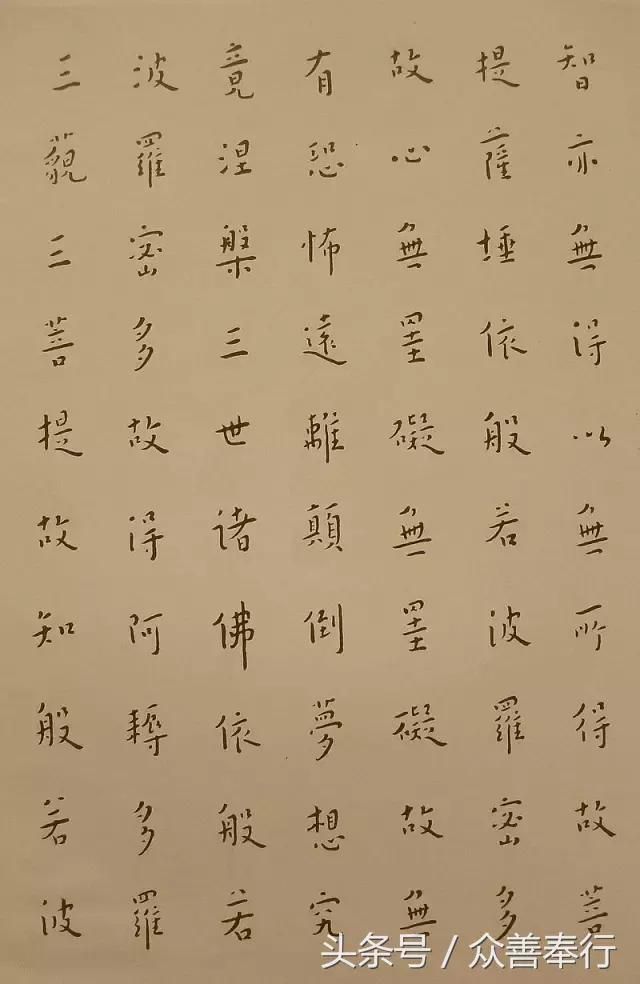 智亦無得以無所得故菩
提薩埵依般若波羅蜜多
故心無罣礙無罣礙故無
有恐怖遠離顛倒夢想究
竟涅槃三世諸佛依般若
波羅蜜多故得阿耨多羅
三藐三菩提故知般若波
头条号 / 众善奉行